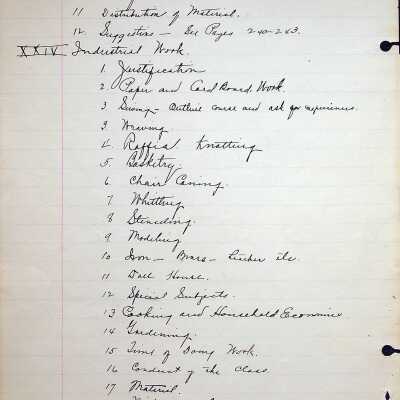 11 Distribution of Material.
12. Suggestions – See Pages 240-263.
XXIV Industrial Work.
1. Justification
2. Paper and Card Board Work.
3 Sewing – Outline course and ask for experiences.
3. Weaving.
4. Raffia Knotting
5. Basketry.
6 Chair Caning.
7 Whittling
8 Stenciling.
9 Modeling
10 Iron – Brass – Leather etc.
11. Doll House.
12 Special Subjects.
13 Cooking and Household Economics
14 Gardening.
15 Time of Doing Work.
16 Conduct of the Class.
17 Material.